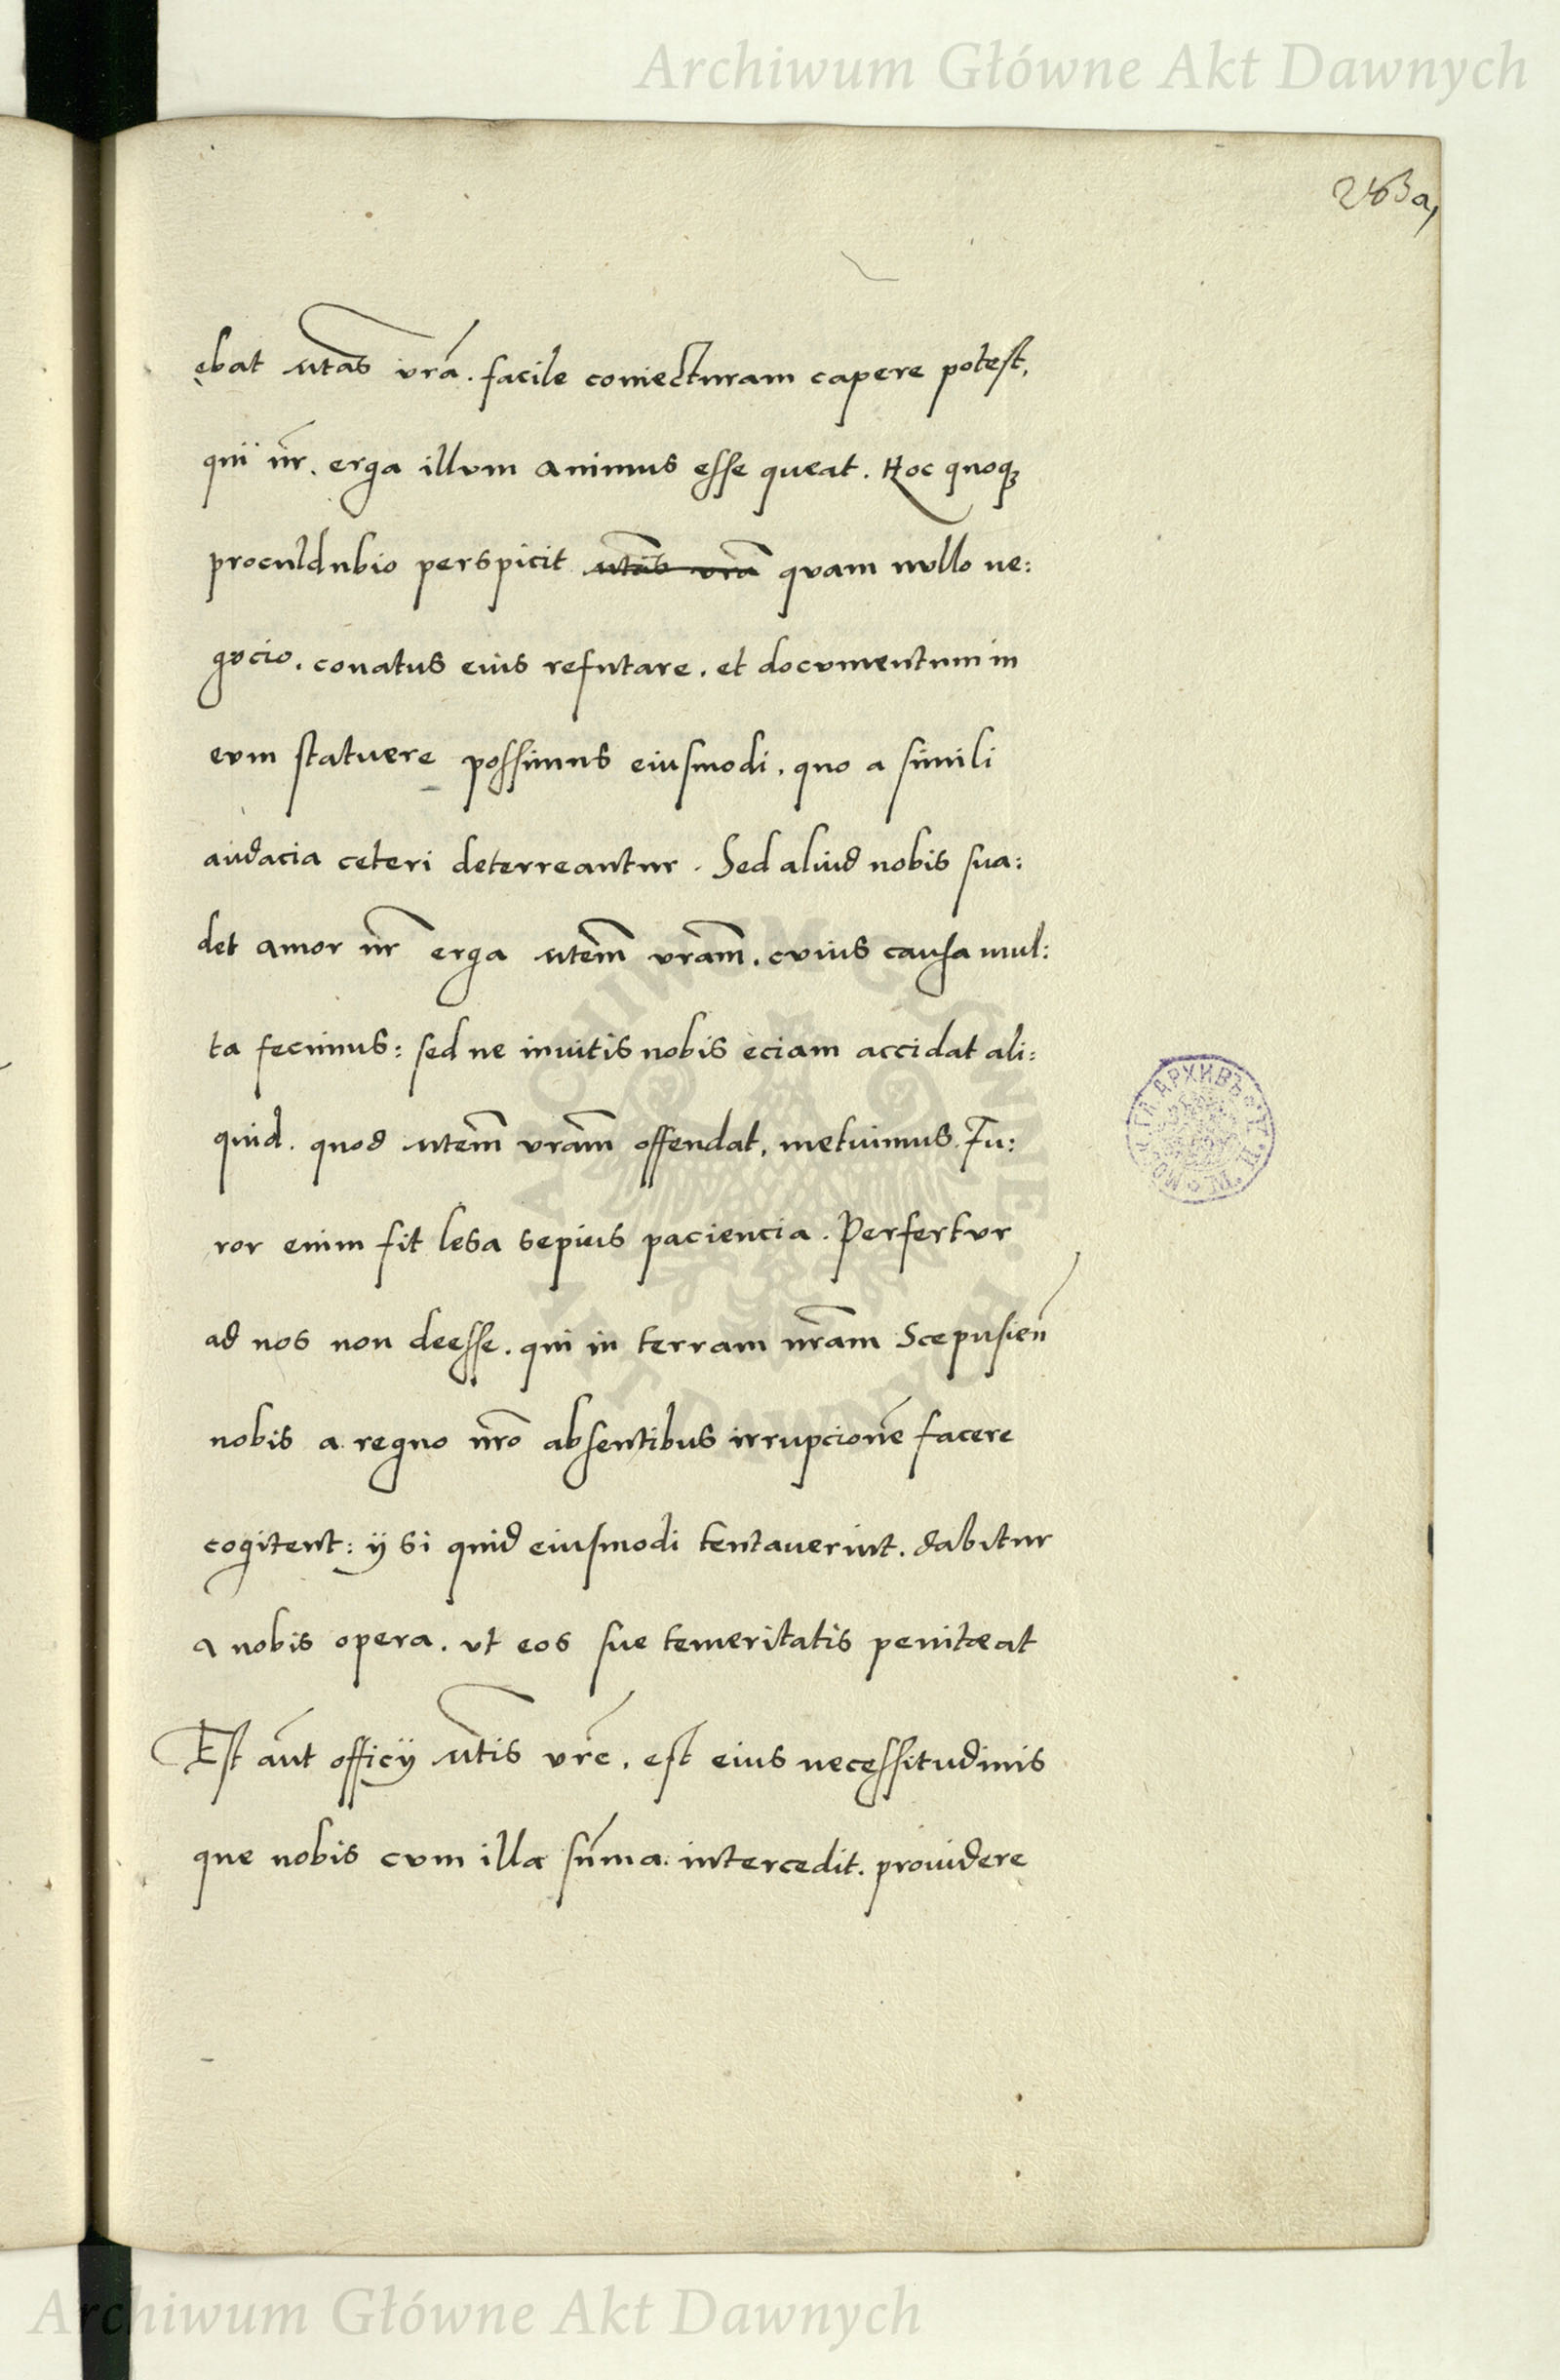 Archiwum Główne Akt Dawnych
263a,
ebat Mtas vrā. facile coniecturam capere potest,
qui nr̄. erga illvm animus esse queat. Hoc quoqꝫ
proculdubio perspicit Mtas vrā qvam nvllo ne:
gocio. conatus eius refutare. et docvmentum in
evm statvere possimus eiusmodi, quo a simili
audacia ceteri deterreantur. Sed aliud nobis sua:
det amor nr̄ erga Mtem̄ vram̄. cvius causa mul:
ta fecimus: sed ne invitis nobis eciam accidat ali:
quid. quod Mtem̄ vram̄ offendat, metuimus. Fu:
ror enim fit lesa sepius paciencia. Perfertvr
ad nos non deesse. qui in terram nram̄ Scepusien̄
nobis a regno nrō absentibus irrupcionē facere
cogitent: ij si quid eiusmodi tentaverint. dabitur
a nobis opera. vt eos sue temeritatis peniteat
Est aūt officij Mtis vrē. est eius necessitudinis
que nobis cvm illa sum̄a. intercedit. providere
ARCHIWUM GŁÓWNE AKT DAWNYCH
АРХИВЪ
Archiwum Główne Akt Dawnych